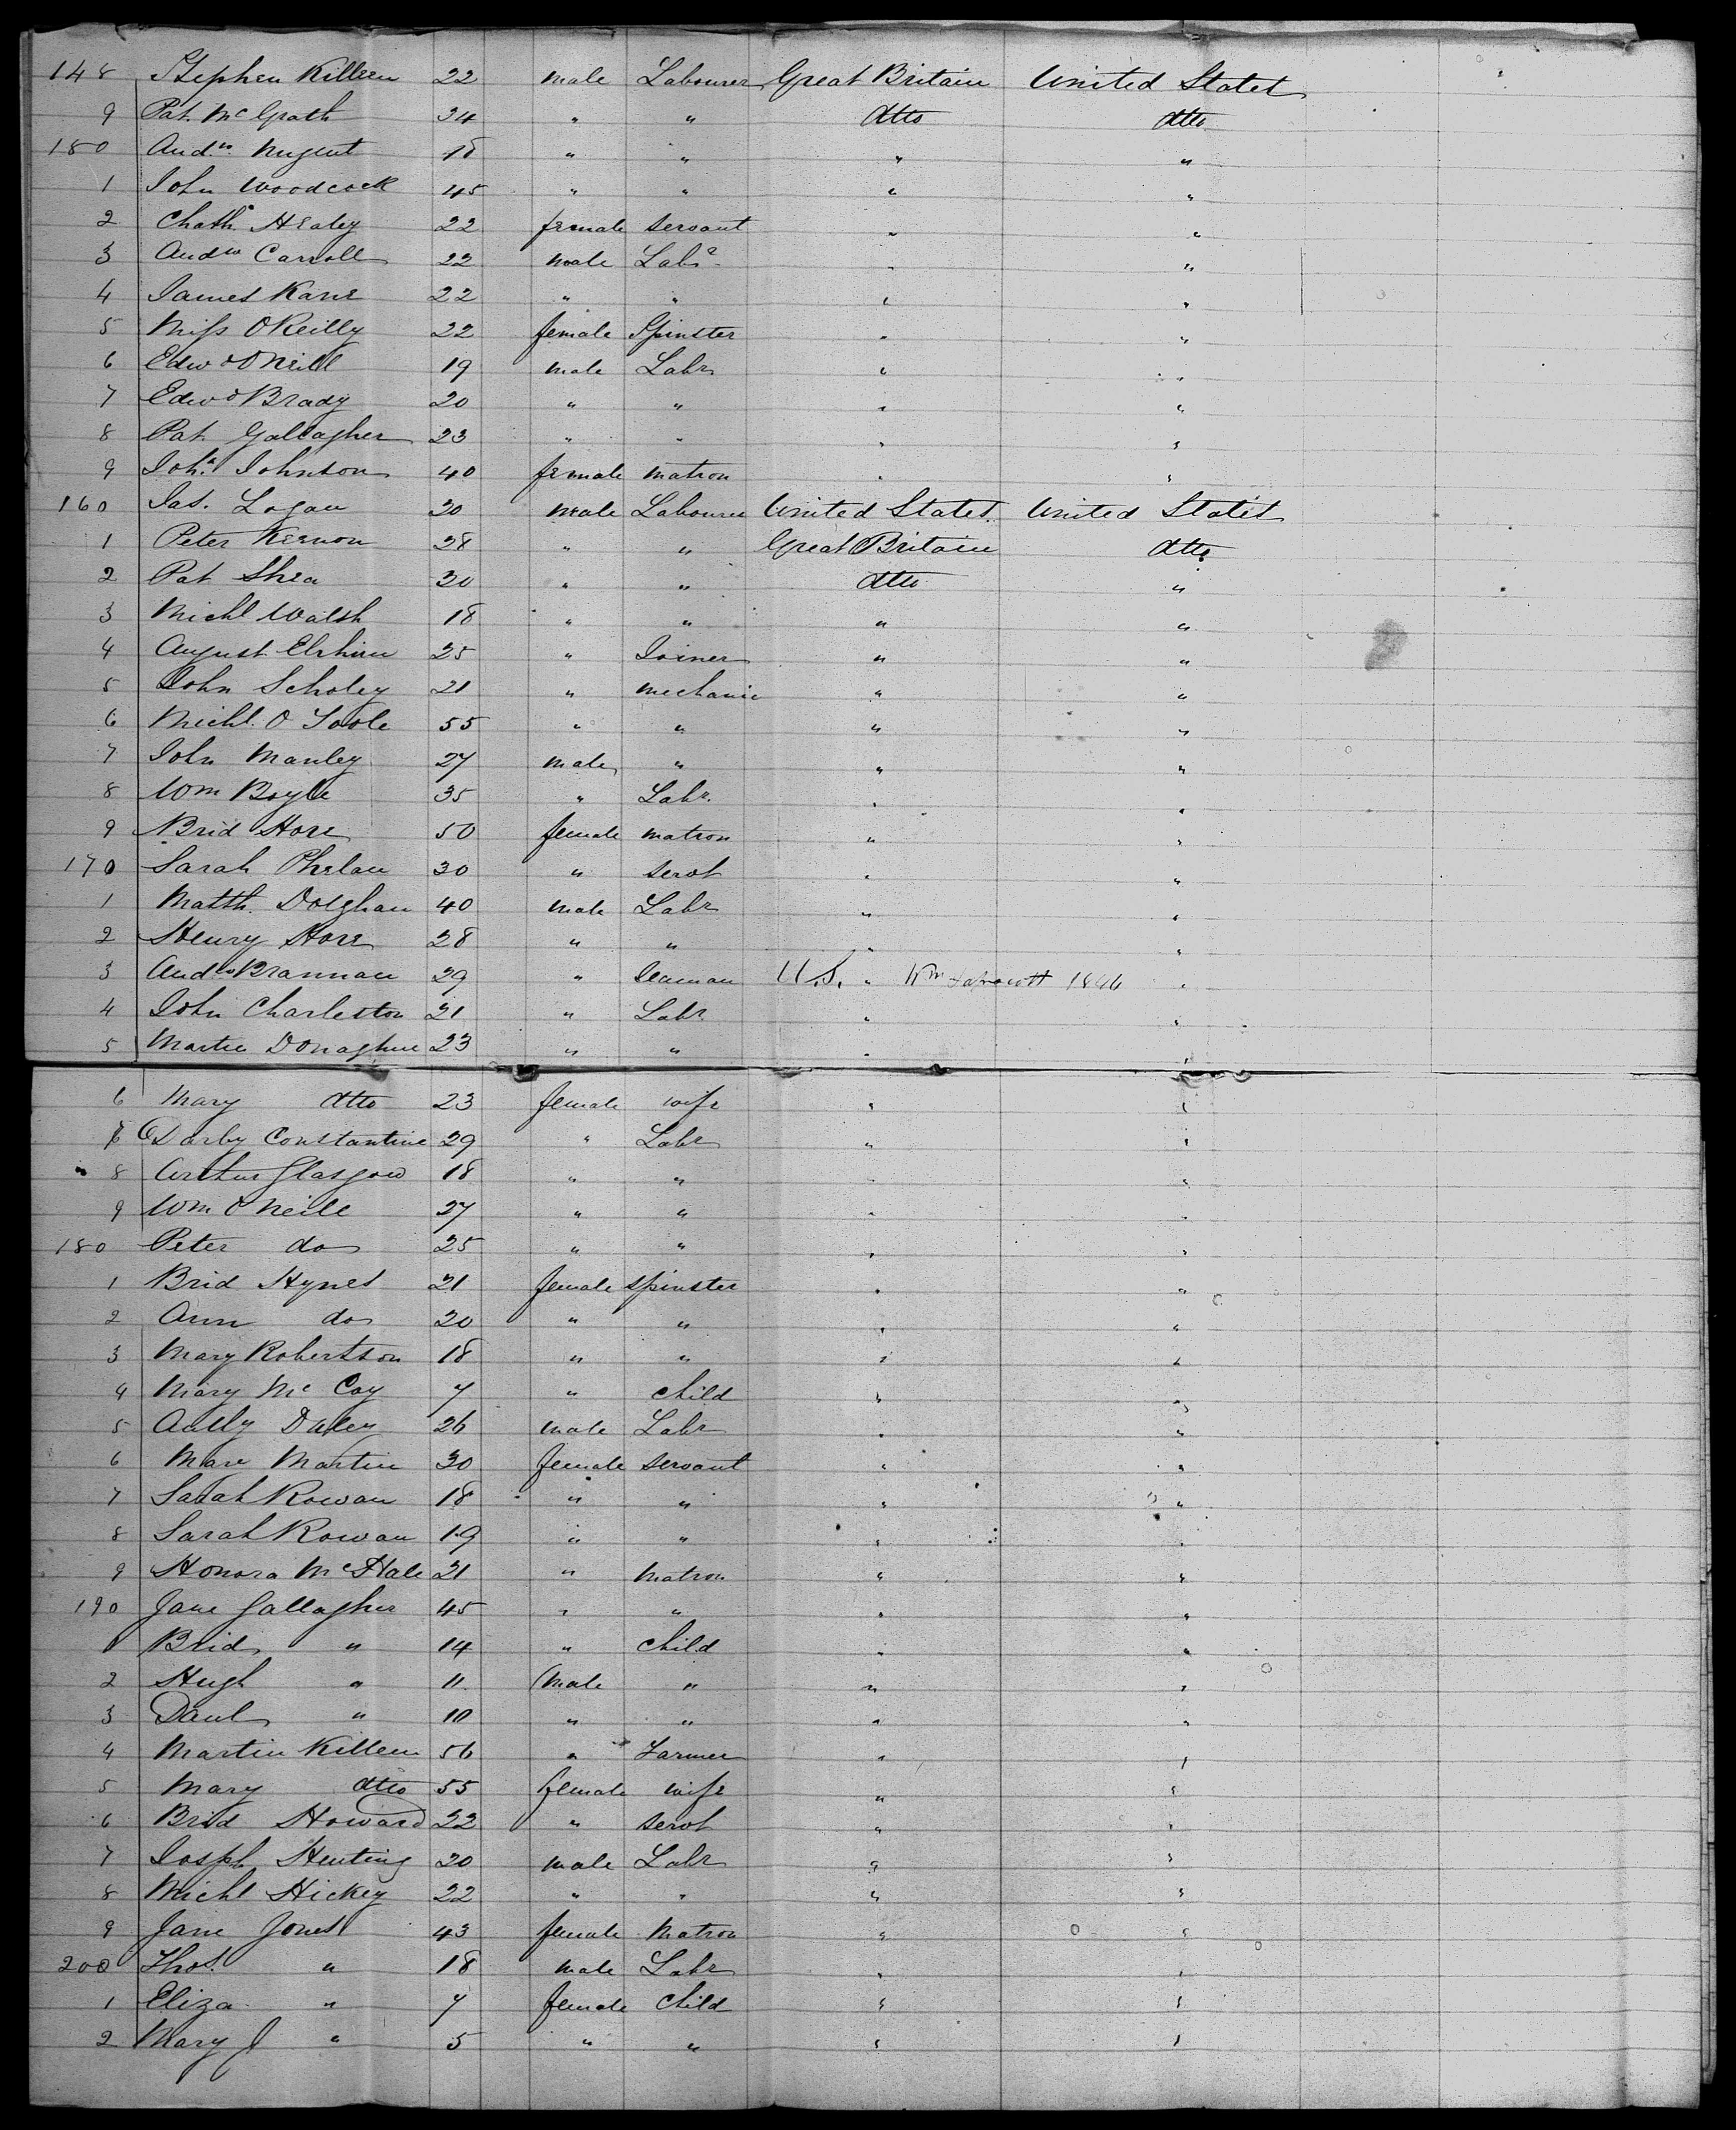 148 Stephen Killeen 22 male Labourer Great Britain United States
9 Pat. McGrath 34 " " ditto ditto
150 Andw. Nugent 18 " " " "
1 John Woodcock 45 " " " "
2 Cath. Healey 22 female servant " "
3 Andw Carroll 22 male Labr. " "
4 James Kane 22 " " " "
5 Miss O'Reilly 22 female Spinster " "
6 Edwd O'Neill 19 male Labr " "
7 Edwd Brady 20 " " " "
8 Pat Gallagher 23 " " " "
9 Joha. Johnson 40 female matron " "
160 Jas. Logan 30 male Labourer United States United States
1 Peter Kernon 28 " " Great Britain ditto
2 Pat Shea 30 " " ditto "
3 Michl Walsh 18 " " " "
4 August 25 " Joiner " "
5 John Scholey 21 " mechanic " "
6 Michl. O Toole 55 " " " "
7 John Manley 27 male " " "
8 Wm Boyle 35 " Labr. " "
9 Brid Hore 50 female matron " "
170 Sarah Phelan 30 " servt " "
1 Matth. Doeghan 40 male Labr " "
2 Henry Hore 28 " " " "
3 Andw Brannan 29 " Seaman U.S. " Wm 1846 "
4 John Charleston 21 " Labr " "
5 Martin Donaghue 23 " " " "
6 Mary ditto 23 female wife " "
7 Darby Constantine 29 " Labr " "
8 Arthur Glasgow 18 " " " "
9 Wm O'Neill 27 " " " "
180 Peter do 25 " " " "
1 Brid Hynes 21 female spinster " "
2 Ann do 20 " " " "
3 Mary Robertson 18 " " " "
4 Mary McCoy 7 " child " "
5 Daley 26 male Labr " "
6 Mare Martin 30 female servant " "
7 Sarah Rowan 18 " " " "
8 Sarah Rowan 19 " " " "
9 Honora McHale 21 " Matron " "
190 Jane Gallagher 45 " " " "
1 Brid " 14 " child " "
2 Hugh " 11 male " " "
3 Danl " 10 " " " "
4 Martin Killeen 56 " Farmer " "
5 Mary ditto 55 female wife " "
6 Brid Howard 22 " servt " "
7 Josph Henting 20 male Labr " "
8 Michl Hickey 22 " " " "
9 Jane Jones 43 female Matron " "
200 Thos. " 18 male Labr " "
1 Eliza " 7 female child " "
2 Mary J " 5 " " " "